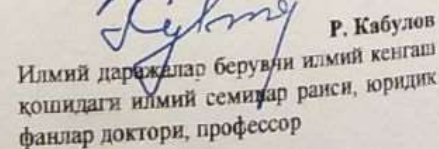 Р. Кабулов
Илмий даражалар берувчи илмий кенгаш
қошидаги илмий семинар раиси, юридик
фанлар доктори, профессор